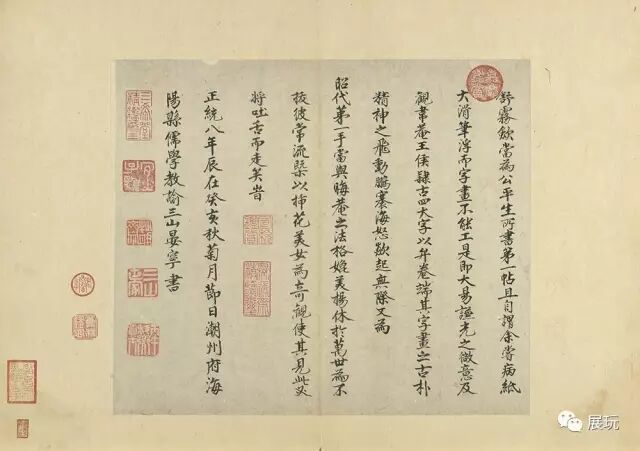 舒霧斂當為公平生所書第一帖且自謂余嘗病紙
大滑筆浮而字畫不能工是即大易謙光之微意及
觀韋菴王侯隸古四大字以弁卷端其字畫之古朴
精神之飛動鵬騫海怒歘起無際又為
昭代第一手當與晦菴之法格媲美揚休於萬世而不
拔彼常流槩以插花美女為可觀使其見此必
將吐舌而走矣旹
正統八年辰在癸亥秋菊月節日潮州府海
陽縣儒學教諭三山晏寧書
展玩